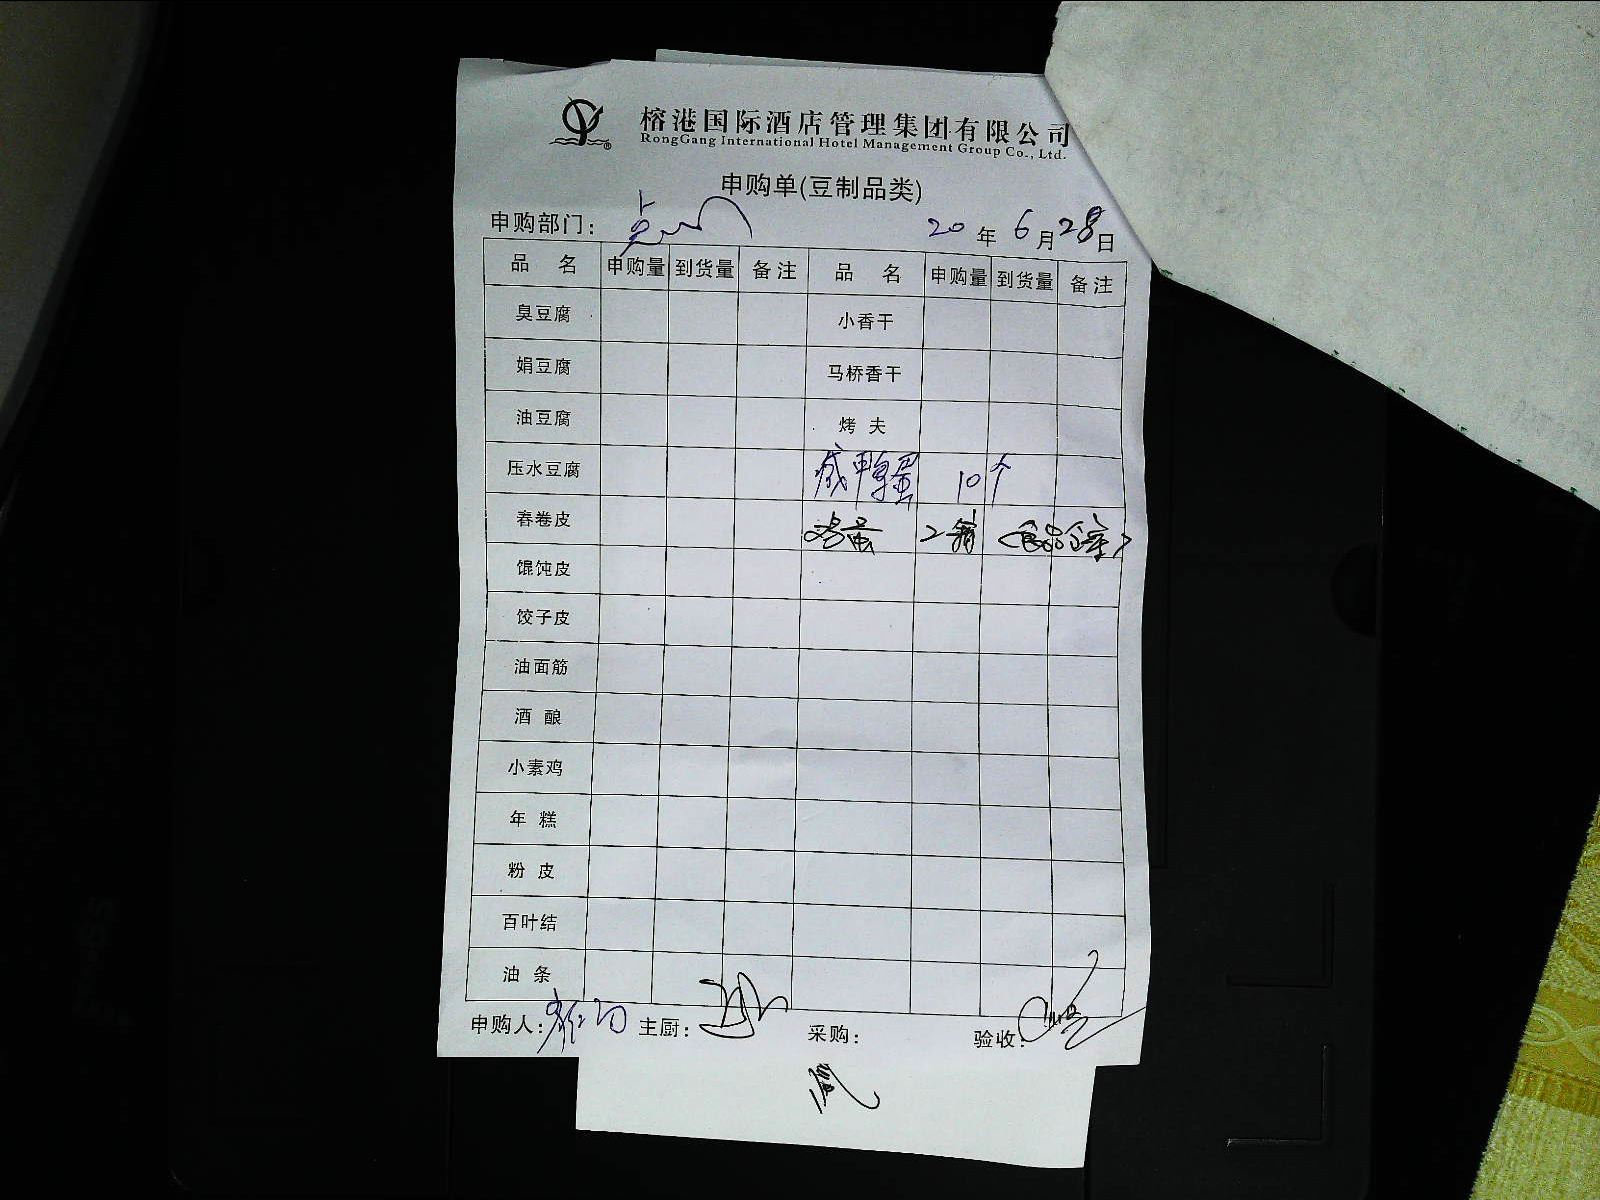 榕港国际酒店管理集团有限公司
RongGang International Hotel Management Group Co., Ltd.
申购单(豆制品类)
申购部门: 点心 20 年 6 月 28 日
品 名 申购量 到货量 备注 品 名 申购量 到货量 备注
臭豆腐 小香干
娟豆腐 马桥香干
油豆腐 烤 夫
压水豆腐 咸鸭蛋 10个
春卷皮 鸡蛋 2箱 (食品仓库)
馄饨皮
饺子皮
油面筋
酒 酿
小素鸡
年 糕
粉 皮
百叶结
油 条
申购人: 主厨: 采购: 验收: